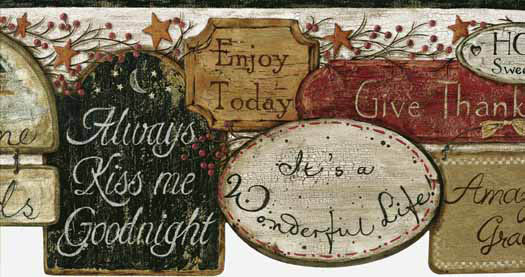 Enjoy
Today
Always
Kiss me
Goodnight
It's a
Wonderful Life!
Give Thank
HO
Swee
Ama
Gra
me
ls